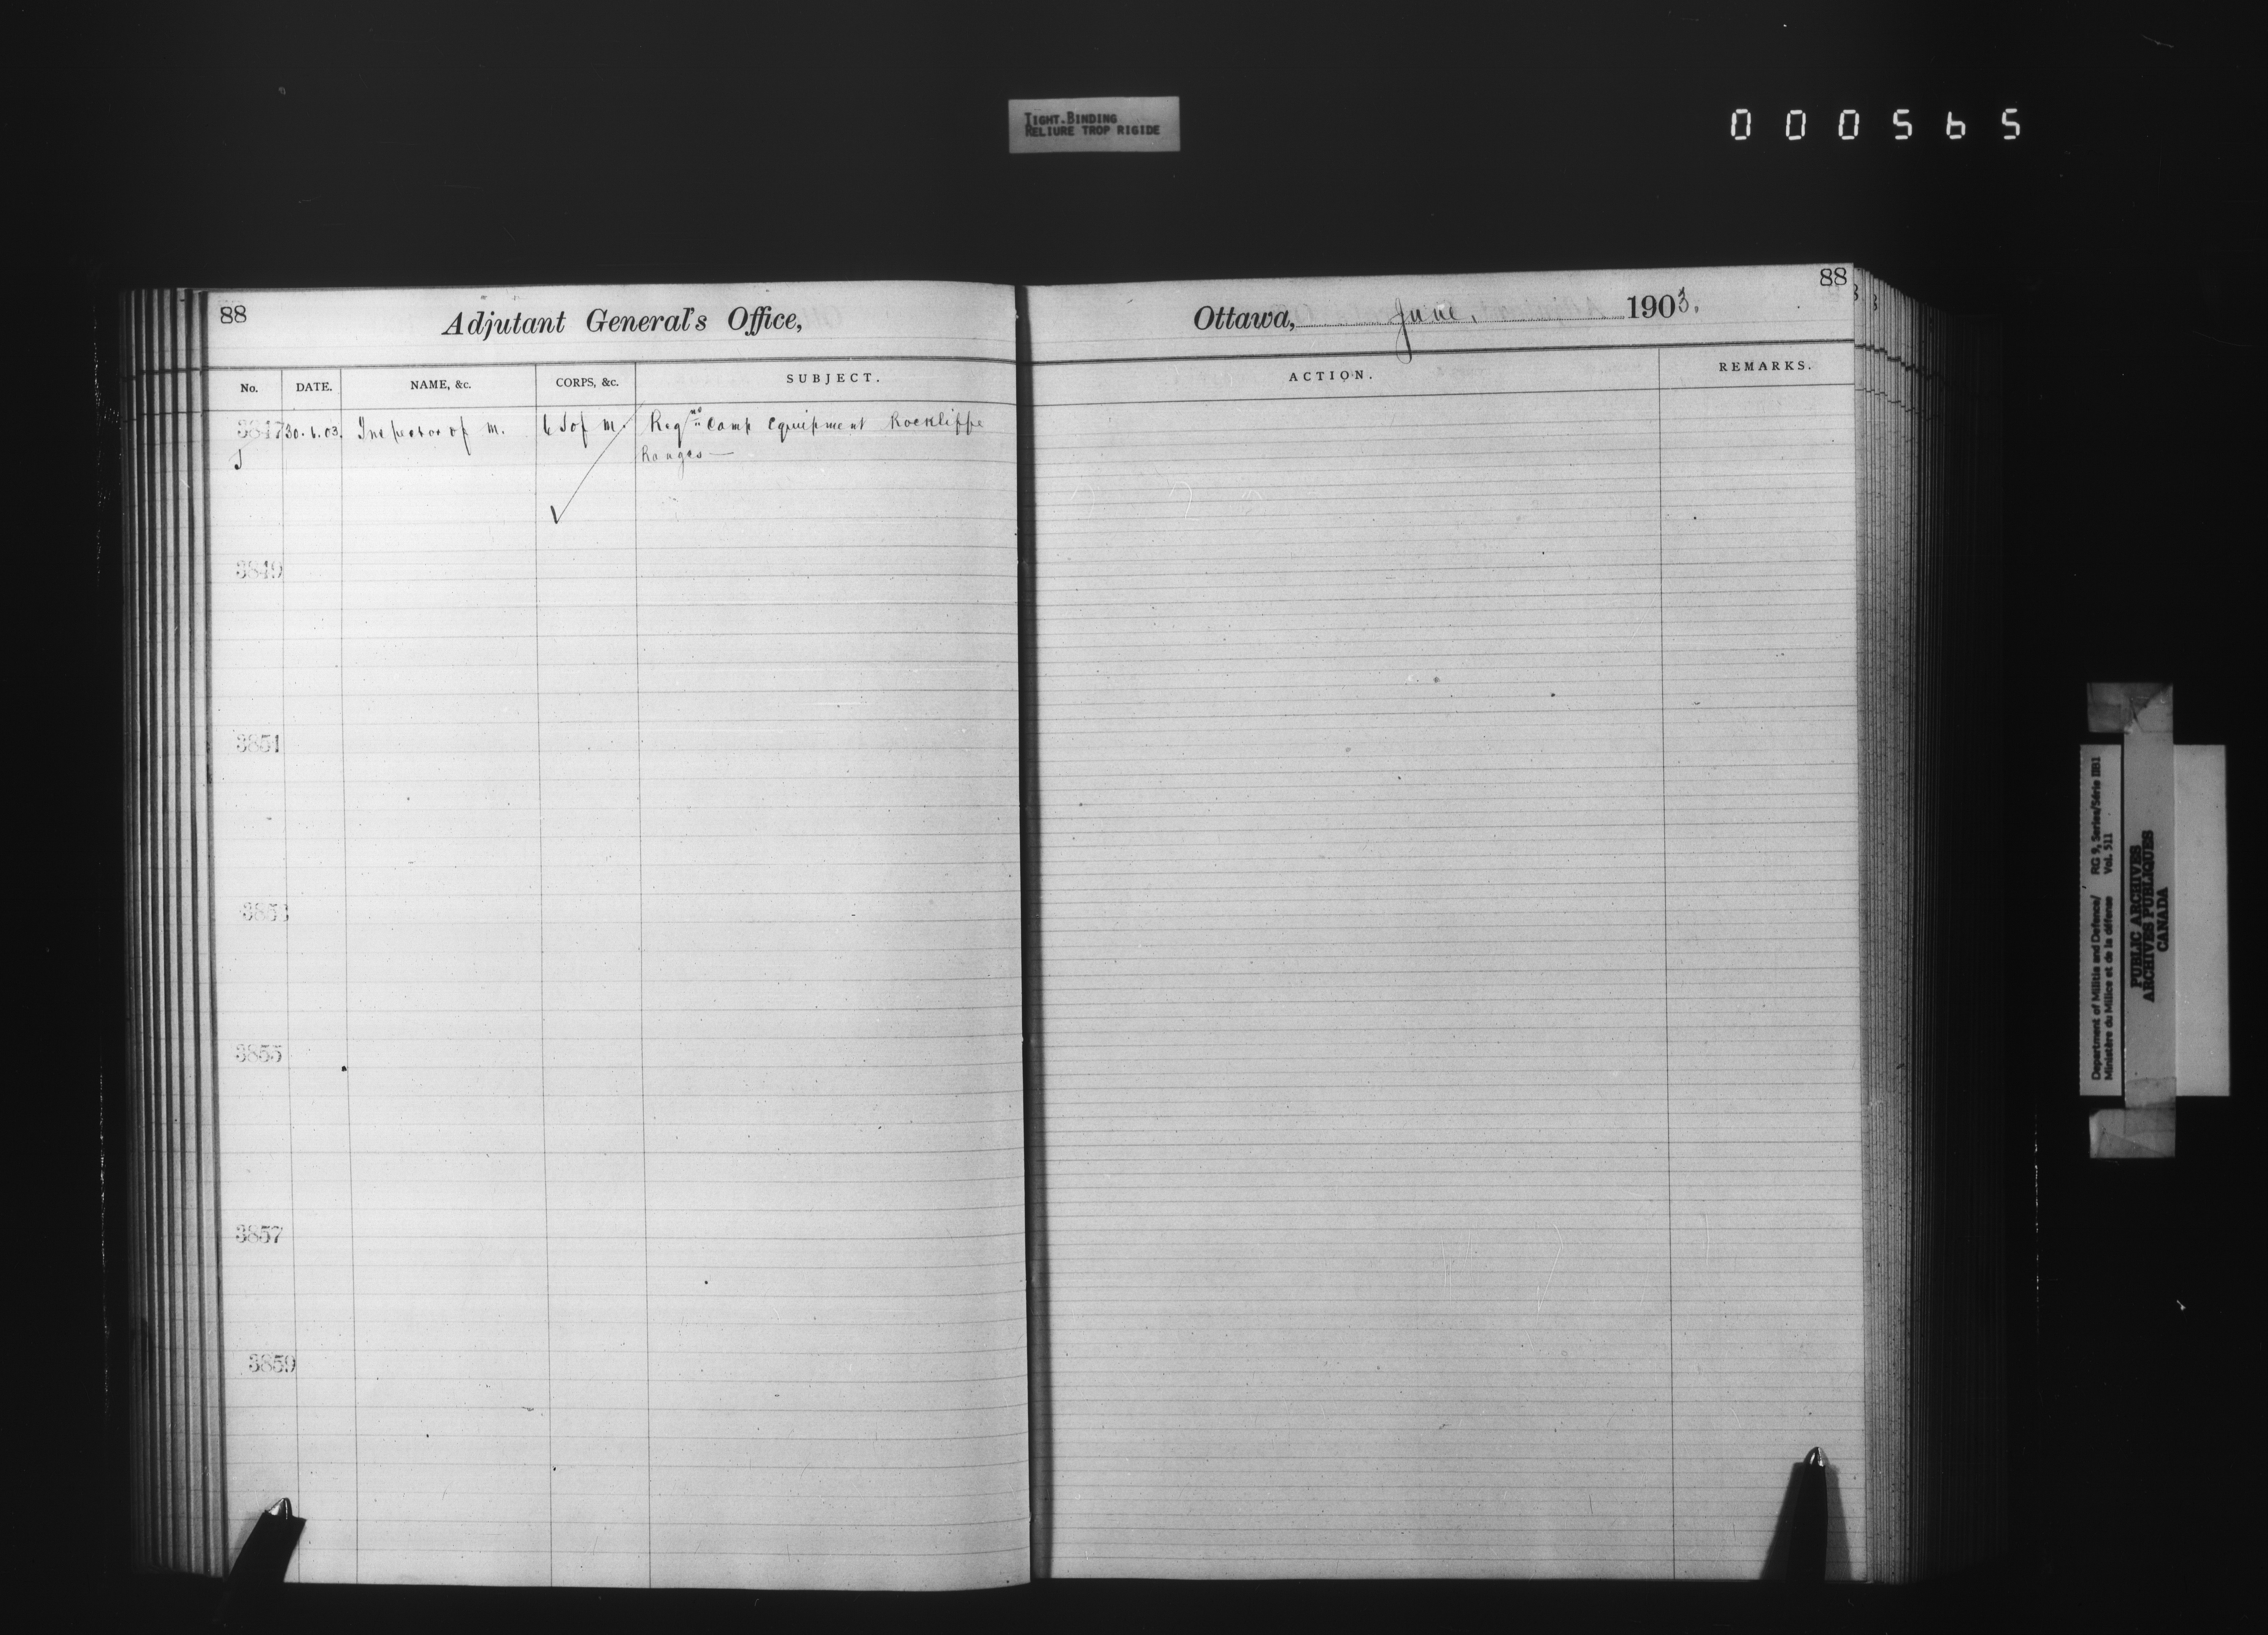 TIGHT BINDING
RELIURE TROP RIGIDE
000565
88
Adjutant General's Office,
No. DATE. NAME, &c. CORPS, &c. SUBJECT.
3847 30.6.03. Inspector of M. S of M. Reqns Camp Equipment Rockliffe
Ranges—
3849
3851
3853
3855
3857
3859
88
Ottawa, June, 1903.
ACTION. REMARKS.
Department of Militia and Defence/ RG 9, Series/Série IIB1
Ministère du Milice et de la défense Vol. 511
PUBLIC ARCHIVES
ARCHIVES PUBLIQUES
CANADA